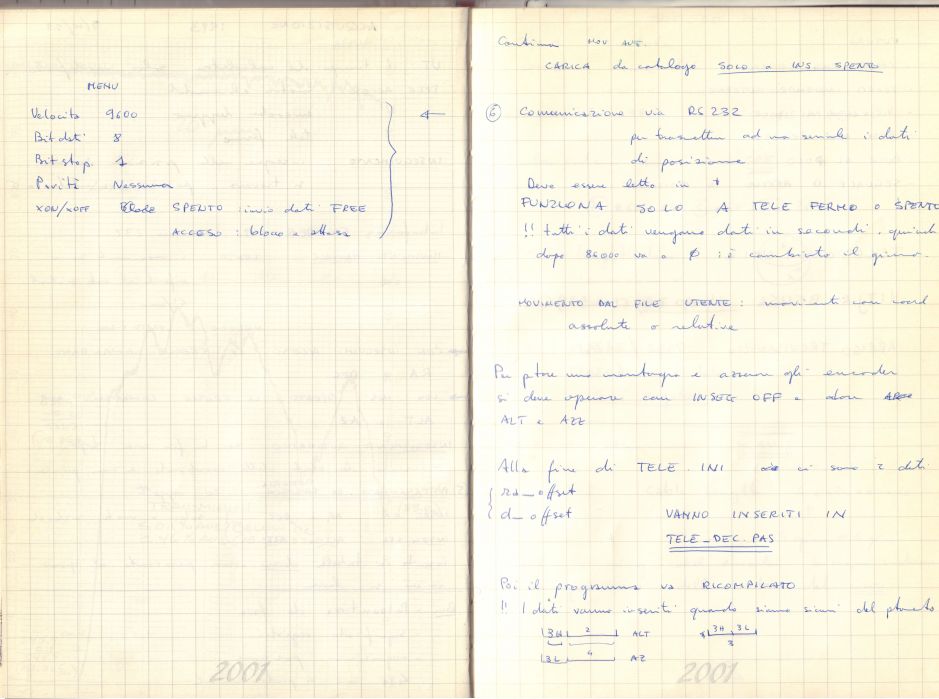 MENU
Velocità 9600
Bit dati 8
Bit stop. 1
Parità Nessuna
XON/XOFF SPENTO : invio dati FREE
ACCESO : blocco e attesa
2001
Continua MOV AUT.
CARICA da catalogo SOLO a INS SPENTO
6 Comunicazione via RS 232
per trasmettere ad una seriale i dati
di posizione
Deve essere letto in
FUNZIONA SOLO A TELE FERMO o SPENTO
!! tutti i dati vengono dati in secondi, quindi
dopo 86000 va a Ø : è cambiato il giorno.
MOVIMENTO DAL FILE UTENTE : movimenti con coord
assolute o relative
Per una montagna e agli encoder
si deve operare con INSEG OFF e
ALT e AZZ
Alla fine di TELE.INI ci sono 2 dati
ra_offset
d_offset VANNO INSERITI IN
TELE_DEC.PAS
Poi il programma va RICOMPILATO
!! I dati vanno inseriti quando siamo sicuri del
3H 2 ALT 3H 3L
3
3L 4 AZ
2001